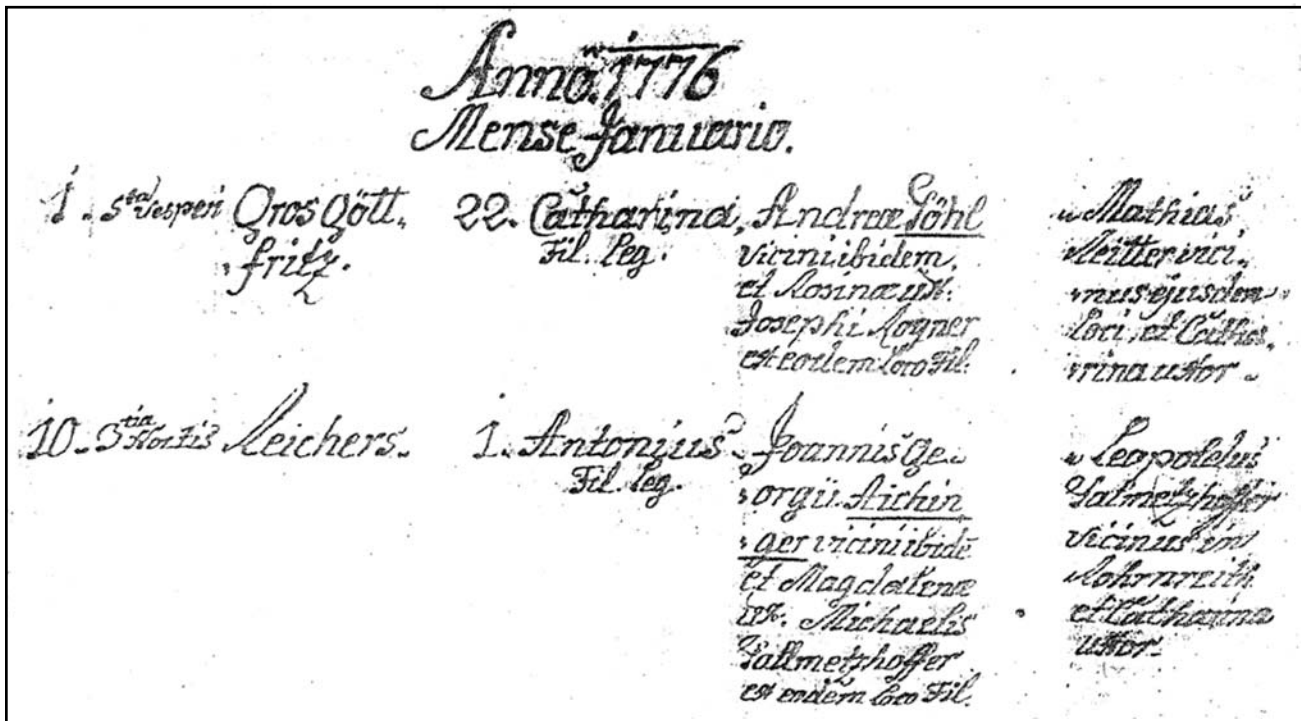 Anno 1776
Mense Januario.
1. 5ta Vesperi Gros Gött,
fritz.
22. Catharina,
Fil. Leg.
Andreæ Pöhl
vicini ibidem,
et Rosinæ ux:
Josephi Rogner
ex eodem loco Fil.
Mathias
Reitter vici,
nus ejusdem
loci, et Catha,
rina uxor.
10. 3tia Noctis Reichers.
1. Antonius
Fil. Leg.
Joannis Ge,
orgii Aichin
ger vicini ibidē
et Magdalenæ
ux. Michaelis
Tallmetzhoffer
ex eodem loco Fil.
Leopoldus
Talmetzhoffer
vicinus in
Rohrnreith
et Catharina
uxor.